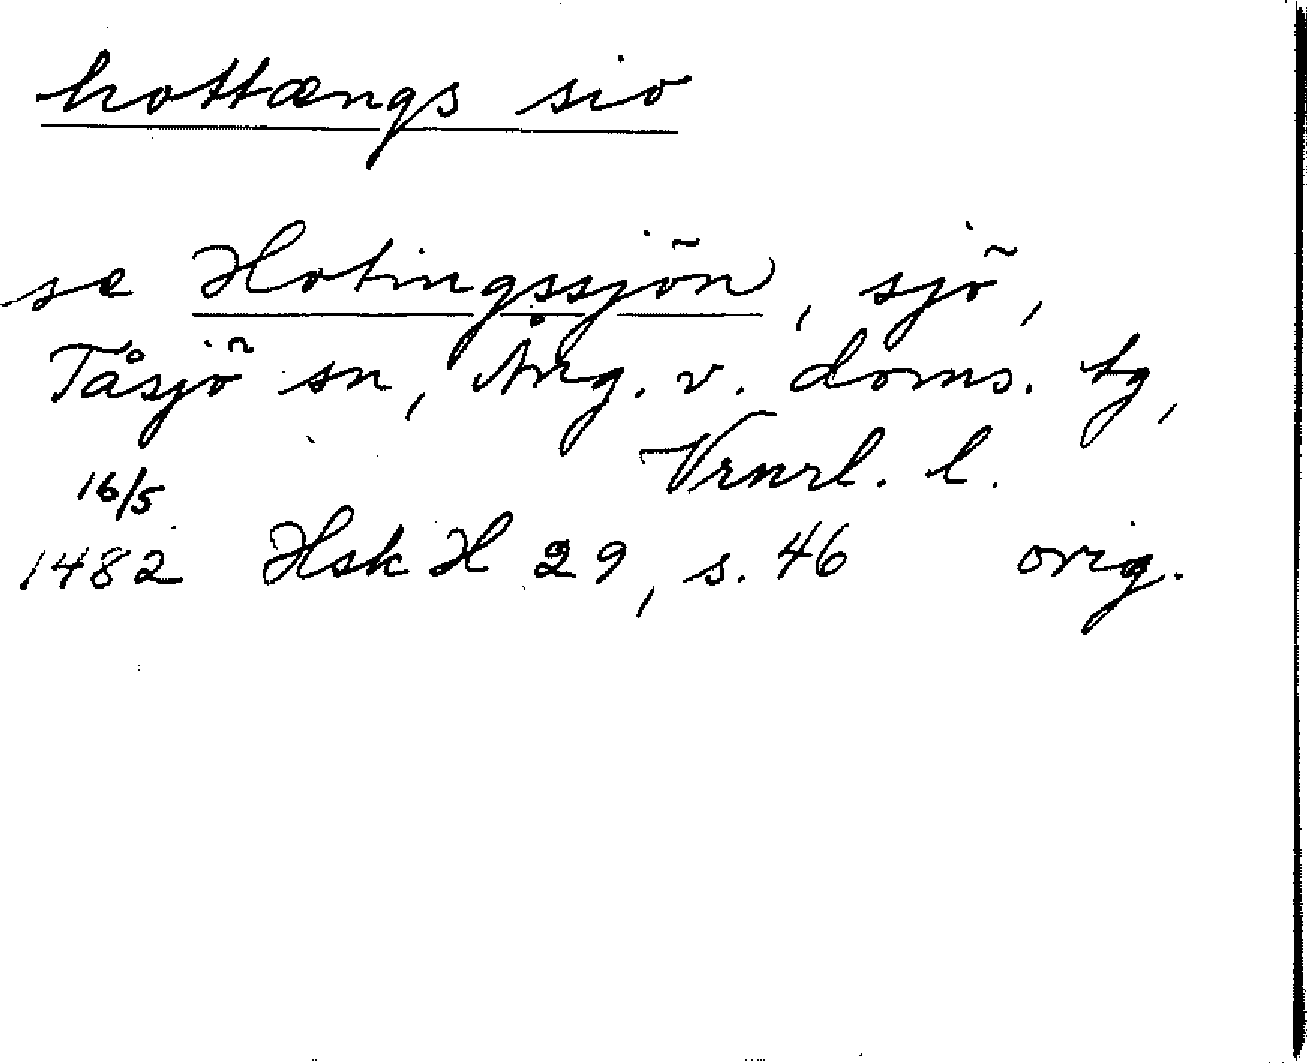 hottængs sio
se Hotingssjön, sjö,
Tåsjö sn, Ång. v. doms. tg,
Vrnrl. l.
16/5
1482 Hsk H 29, s. 46 orig.